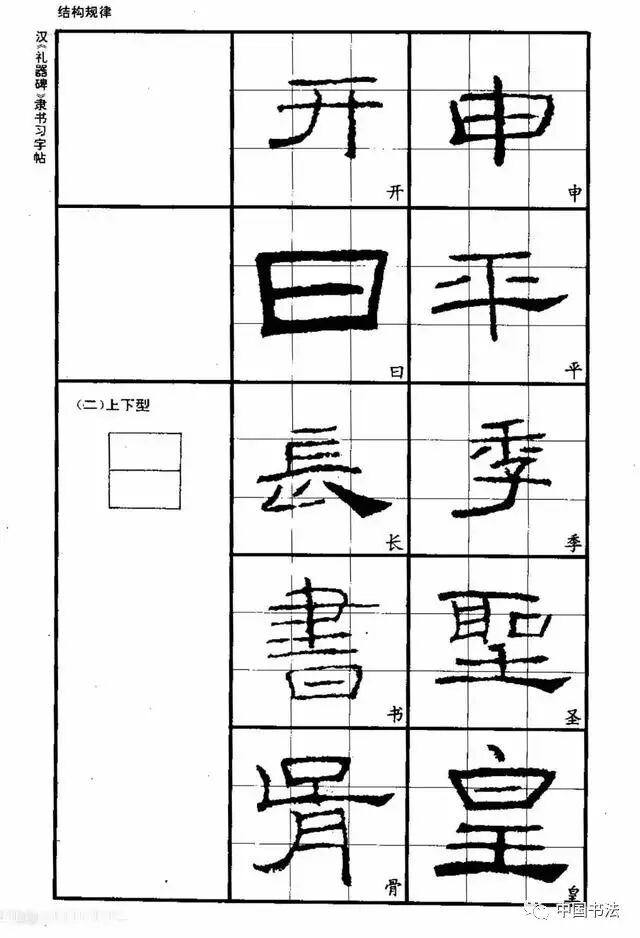 结构规律
汉《礼器碑》隶书习字帖
开 申
开 申
曰 平
曰 平
(二)上下型
長 季
长 季
書 聖
书 圣
骨 皇
骨 皇
中国书法